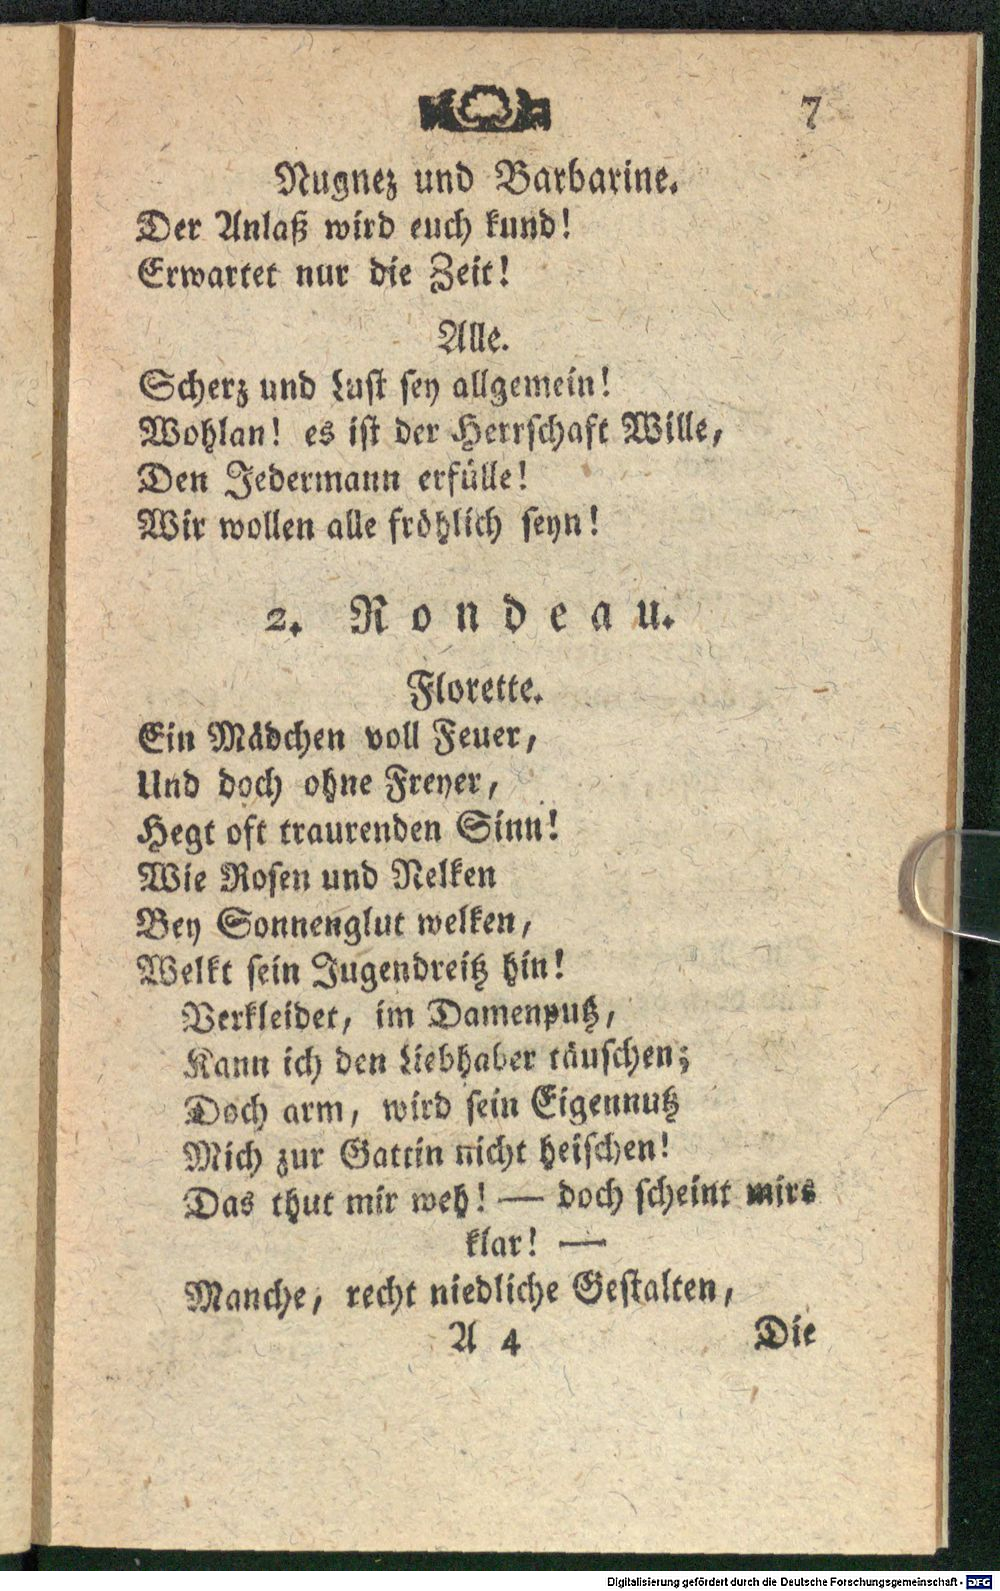 7
Nugnez und Barbarine.
Der Anlaß wird euch kund!
Erwartet nur die Zeit!
Alle.
Scherz und Lust sey allgemein!
Wohlan! es ist der Herrschaft Wille,
Den Jedermann erfülle!
Wir wollen alle fröhlich seyn!
2. Rondeau.
Florette.
Ein Mädchen voll Feuer,
Und doch ohne Freyer,
Hegt oft traurenden Sinn!
Wie Rosen und Nelken
Bey Sonnenglut welken,
Welkt sein Jugendreitz hin!
Verkleidet, im Damenputz,
Kann ich den Liebhaber täuschen;
Doch arm, wird sein Eigennutz
Mich zur Gattin nicht heischen!
Das thut mir weh! — doch scheint mirs
klar! —
Manche, recht niedliche Gestalten,
A 4 Die
Digitalisierung gefördert durch die Deutsche Forschungsgemeinschaft - DFG